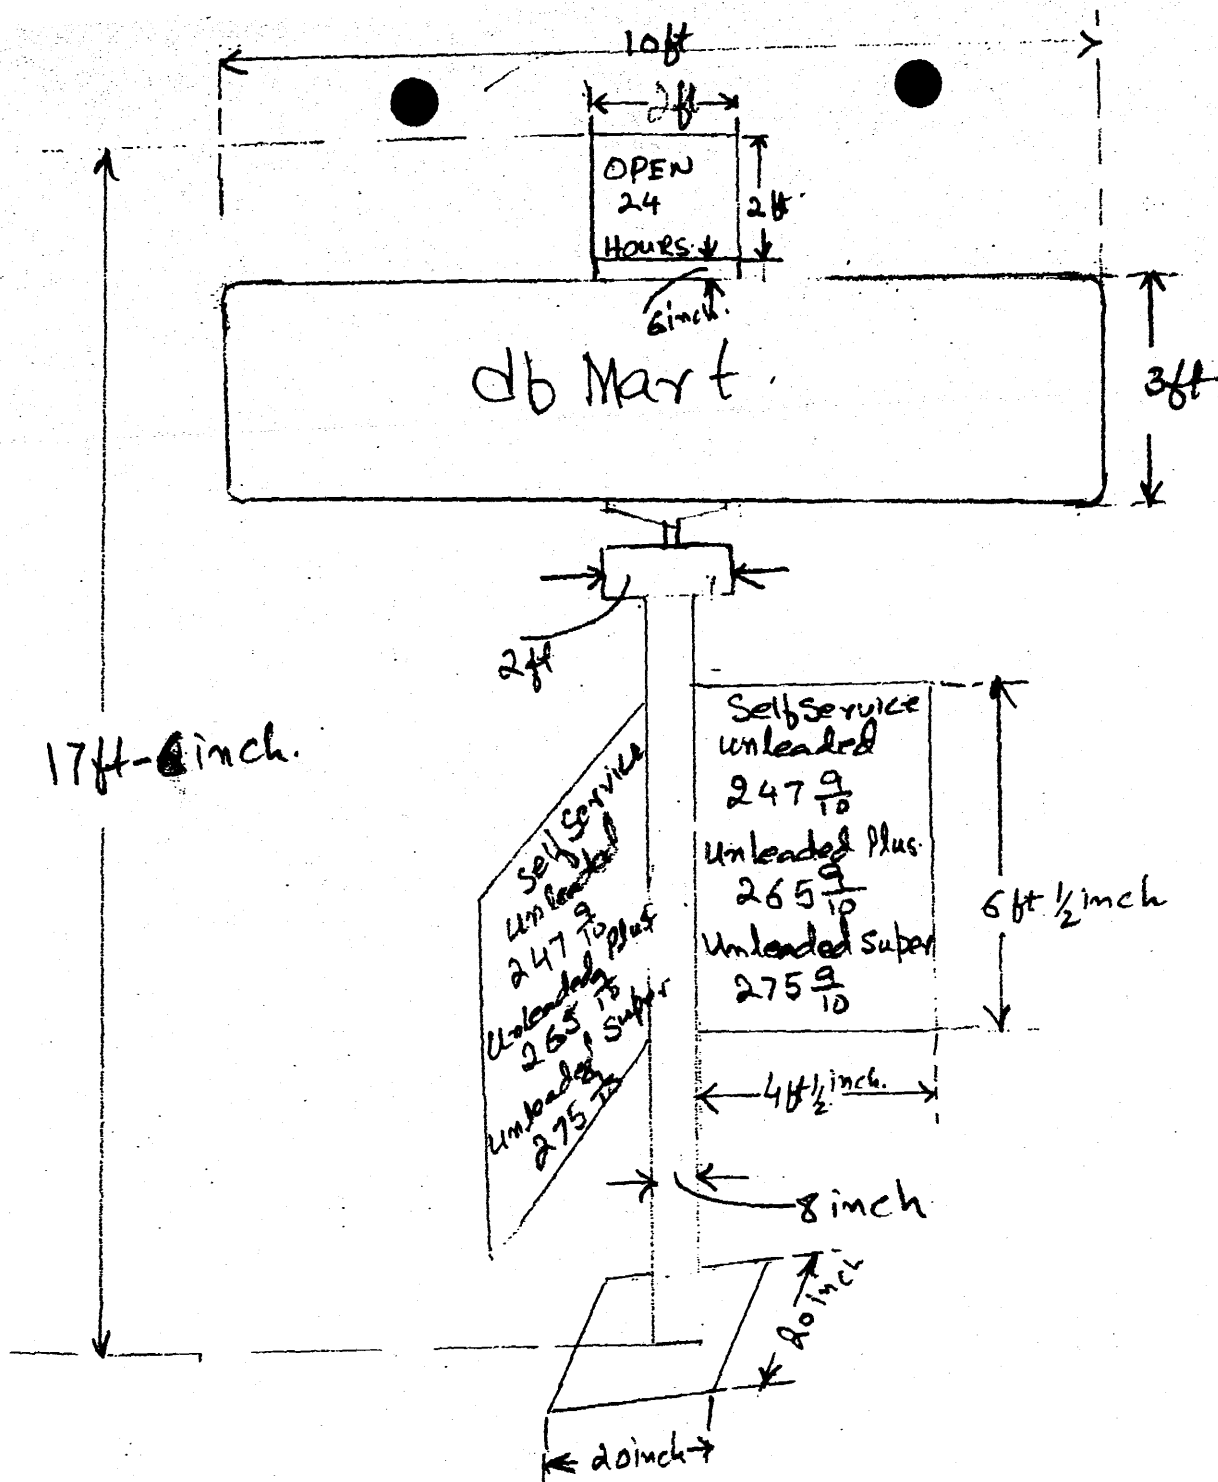 10ft
2ft
OPEN
24
HOURS.
2ft
6inch.
db Mart.
3ft
2ft
17ft-6inch.
Self Service
unleaded
247 9/10
Unleaded Plus.
265 9/10
Unleaded Super
275 9/10
6 ft 1/2 inch
Self Service
Unleaded
247 9/10
Unleaded Plus
265 9/10
Unleaded Super
275 9/10
4ft 1/2 inch.
8 inch
20 inch
20 inch